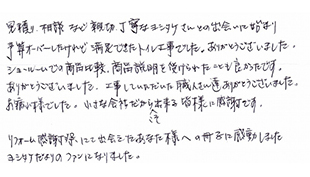 見積り、相談など親切、丁寧なヨシタケさんとの出会いに始まり
予算オーバーしたけれど満足できたトイレ工事でした。ありがとうございました。
ショールームでの商品比較、商品説明を受けられたことも良かったです。
ありがとうございました。工事していただいた職人さん達ありがとうございました。
お疲れ様でした。小さな会社だからこそ出来る皆様に感謝です。
リフォーム感謝祭にて出会えたあなた様への冊子に感動しました
ヨシタケだよりのファンになりました。